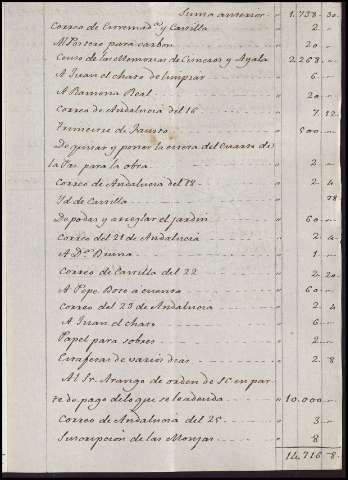 Suma anterior - " 1.738 - 30.
Correo de Extremad.ª y Castilla - - - " 2 - "
Al Portero para carbon - - - " 20 - "
Censo de las Memorias de Cisneros y Ayala " 2.268 - -
A Juan el chato de limpiar - - - " 6 - "
A Ramona Real - - - " 20 - "
Correo de Andalucia del 16 - - - " 7. 12 -
de Fausto - - - " 500 - -
y poner la estera del Cuarto de
la Paz para la obra - - - " 2 - "
Correo de Andalucia del 18 - - - " 2 - 4
Yd. de Castilla - - - " " 28
De podar y arreglar el jardin - - - " 60 - "
Correo del 21 de Andalucia - - - " 2 - 4 -
A D.ª Bruna - - - " 1 - "
Correo de Castilla del 22 - - - " 2 - 20 -
A Pepe Boso a cuenta - - - " 60 - "
Correo del 23 de Andalucia - - - " 2 - 4
A Juan el chato - - - " 6 - "
Papel para sobres - - - " 2 - "
Estafetas de varios dias - - - " 2 - 8
Al Sr. Arango de orden de SE en par-
te de pago de lo que se le adeuda - - - " 10.000 - -
Correo de Andalucia del 25 - - - " 3 - "
Suscripcion de las Monjas - - - " 8 - "
14,716 - 8 -